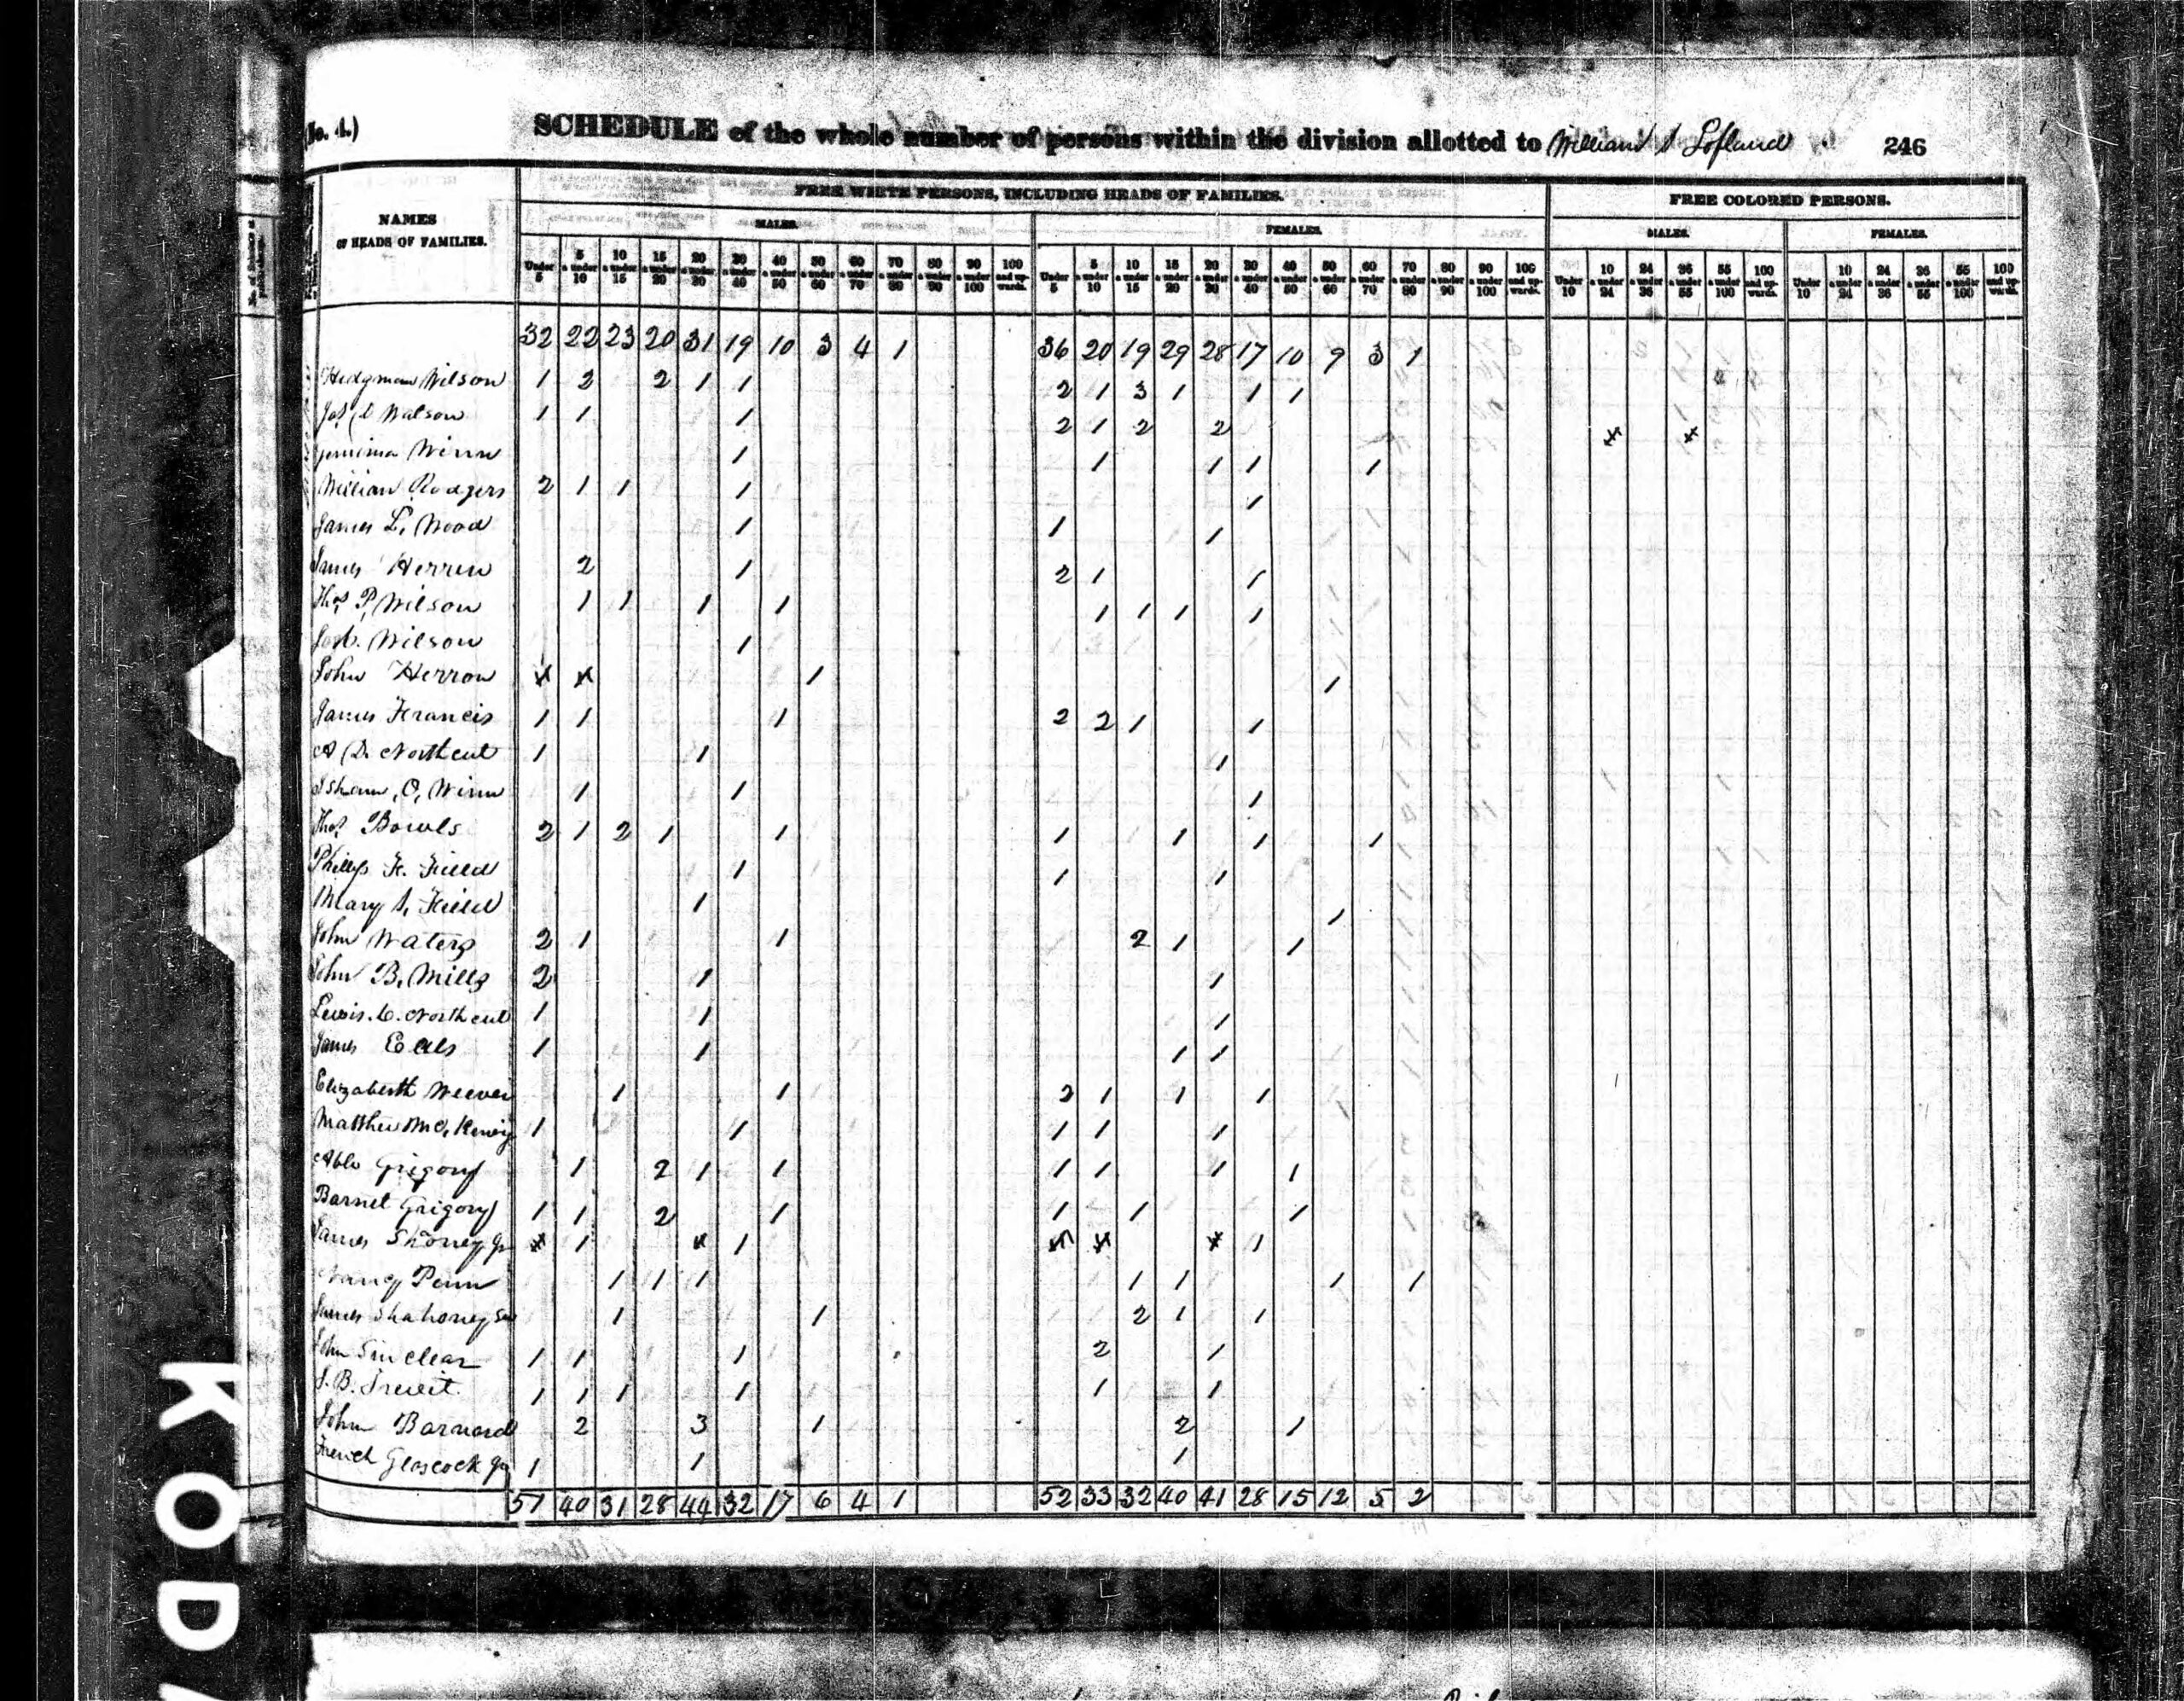 (No. 4.) SCHEDULE of the whole number of persons within the division allotted to William S Lofland 246
FREE WHITE PERSONS, INCLUDING HEADS OF FAMILIES. FREE COLORED PERSONS.
NAMES OF HEADS OF FAMILIES. MALES. FEMALES. MALES. FEMALES.
Under 5 5 & under 10 10 & under 15 15 & under 20 20 & under 30 30 & under 40 40 & under 50 50 & under 60 60 & under 70 70 & under 80 80 & under 90 90 & under 100 100 and upwards. Under 5 5 & under 10 10 & under 15 15 & under 20 20 & under 30 30 & under 40 40 & under 50 50 & under 60 60 & under 70 70 & under 80 80 & under 90 90 & under 100 100 and upwards. Under 10 10 & under 24 24 & under 36 36 & under 55 55 & under 100 100 and upwards. Under 10 10 & under 24 24 & under 36 36 & under 55 55 & under 100 100 and upwards.
32 22 23 20 31 19 10 3 4 1 36 20 19 29 28 17 10 9 3 1
Hedgman Wilson 1 2 2 1 1 2 1 3 1 1 1
Jos D Watson 1 1 1 2 1 2 2
Jemima Winn 1 1 1 1 1
William Rodgers 2 1 1 1 1
James L. Wood 1 1 1
James Herren 2 1 2 1 1
Thos P. Wilson 1 1 1 1 1 1 1 1
Wilson 1
John Herron 1 1
James Francis 1 1 1 2 2 1 1
A D. Northcut 1 1 1
Isham, O, Winn 1 1 1
Thos Bowls 2 1 2 1 1 1 1 1 1
Phillip F. Field 1 1 1
Mary S. Field 1 1
John Waters 2 1 1 2 1 1
John B. Mills 2 1 1
Lewis. C. Northcut 1 1 1
James Eales 1 1 1 1
Elizabeth Weever 1 1 2 1 1 1
Matthew 1 1 1 1 1
Able Grigory 1 2 1 1 1 1 1 1
Barnet Grigory 1 1 2 1 1 1 1
James Jr 1 1 1
Nancy Penn 1 1 1 1 1 1 1
James Shahoney Sen 1 1 2 1 1
John Sinclear 1 1 1 2 1
J. B. Trewit 1 1 1 1 1 1
John Barnard 2 3 1 2 1
French Glascock Jr 1 1 1
51 40 31 28 44 32 17 6 4 1 52 33 32 40 41 28 15 12 5 2
KODA